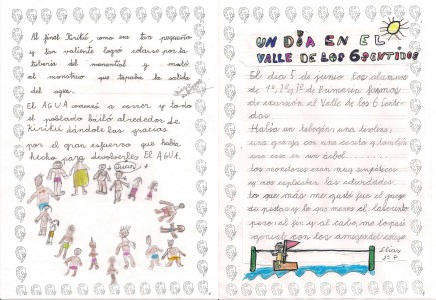 Al final Kirikú, como era tan pequeño
y tan valiente logró colarse por la
tubería del manantial y mató
al monstruo que tapaba la salida
del agua.
El AGUA comenzó a correr y todo
el poblado bailó alrededor de
Kirikú dándole las gracias
por el gran esfuerzo que había
hecho para devolverles EL AGUA.
Juan
UN DÍA EN EL
VALLE DE LOS 6 SENTIDOS
El día 5 de junio los alumnos
de 1º, 2º y 3º de Primaria fuimos
de excursión al Valle de los 6 Senti-
dos.
Había un tobogán, una tirolina,
una granja con una casita y también
una casa en un árbol.
Los monitores eran muy simpáticos
y nos explicaban las actividades.
Lo que más me gustó fue el juego
de pistas y lo que menos el laberinto
pero al fin y al cabo, me lo pasé
genial con los amigos del colegio.
Elías
2º P